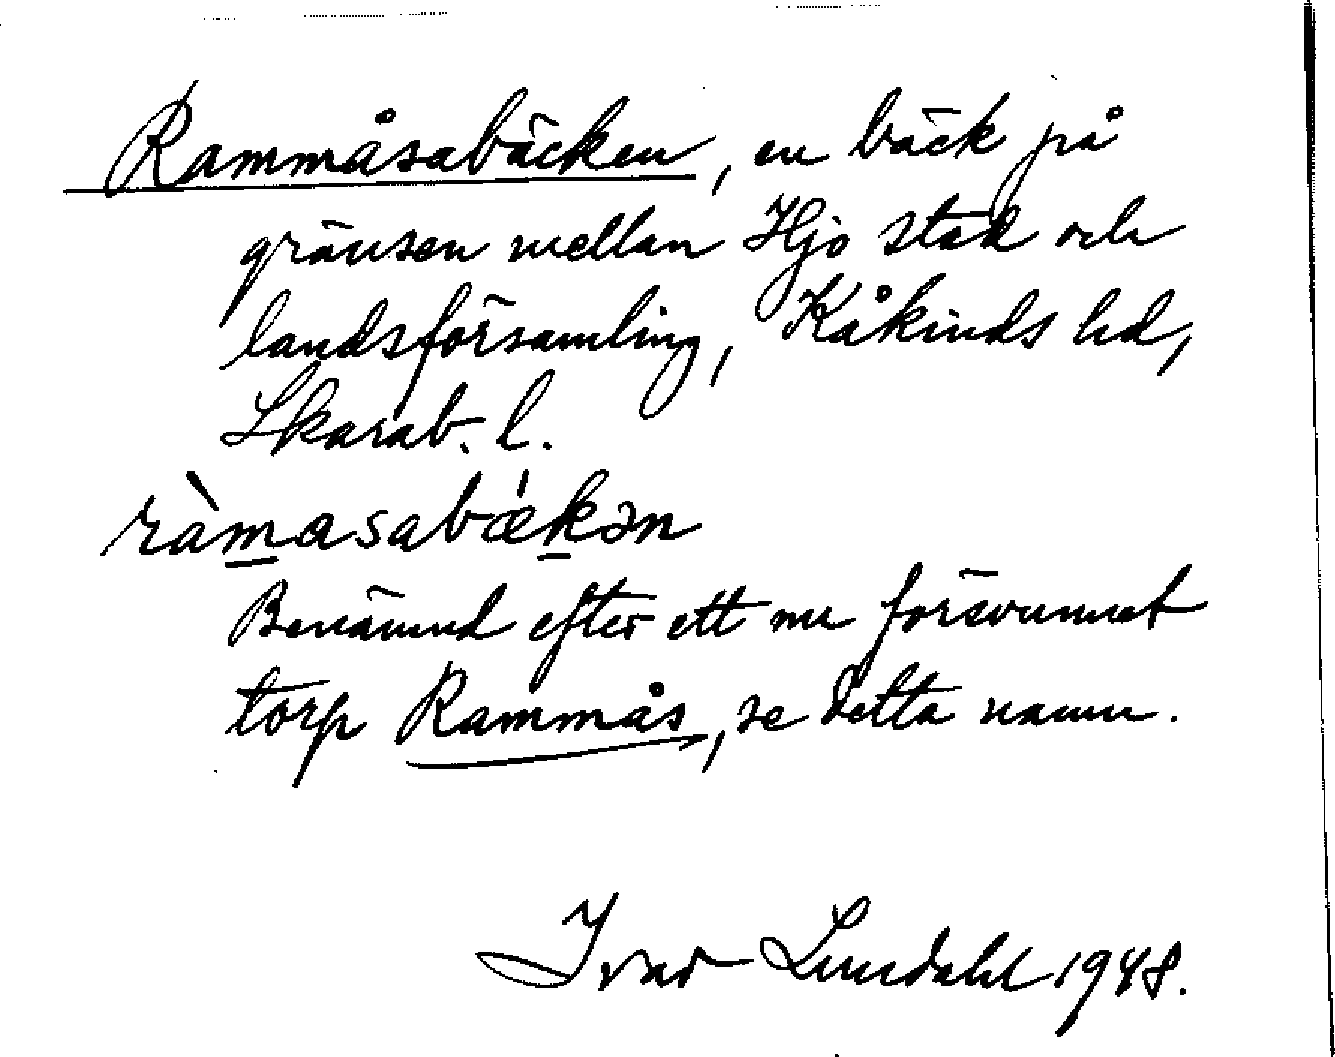 Rammåsabäcken, en bäck på
gränsen mellan Hjo stad och
landsförsamling, Kåkinds hd,
Skarab. l.
ràm̲asabǽk̲ən
Benämnd efter ett nu försvunnet
torp Rammås, se detta namn.
Ivar Lundahl 1948.